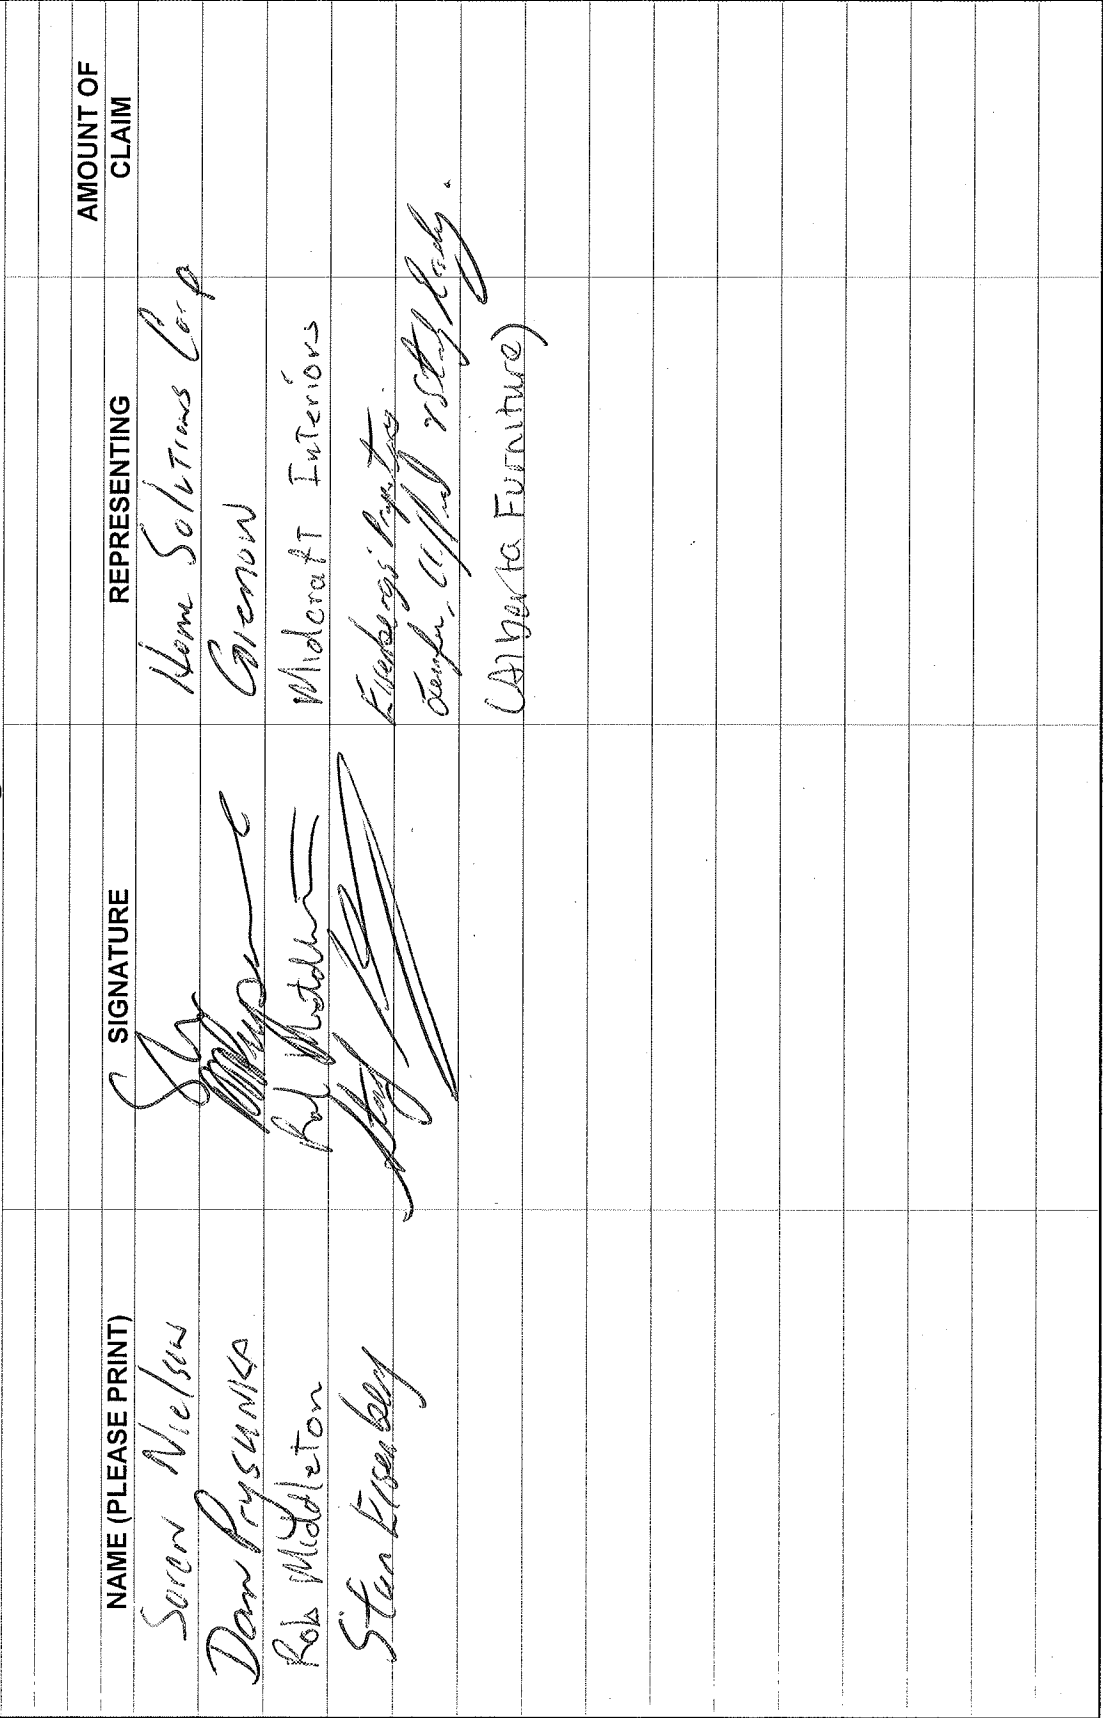 NAME (PLEASE PRINT) SIGNATURE REPRESENTING AMOUNT OF CLAIM
Soren Nielsen Home Solutions Corp
Dan Prysunka Gienow
Rob Middleton Rob Middleton Midcraft Interiors
Stan Eisenberg Eisenbergs Properties
(Alberta Furniture)